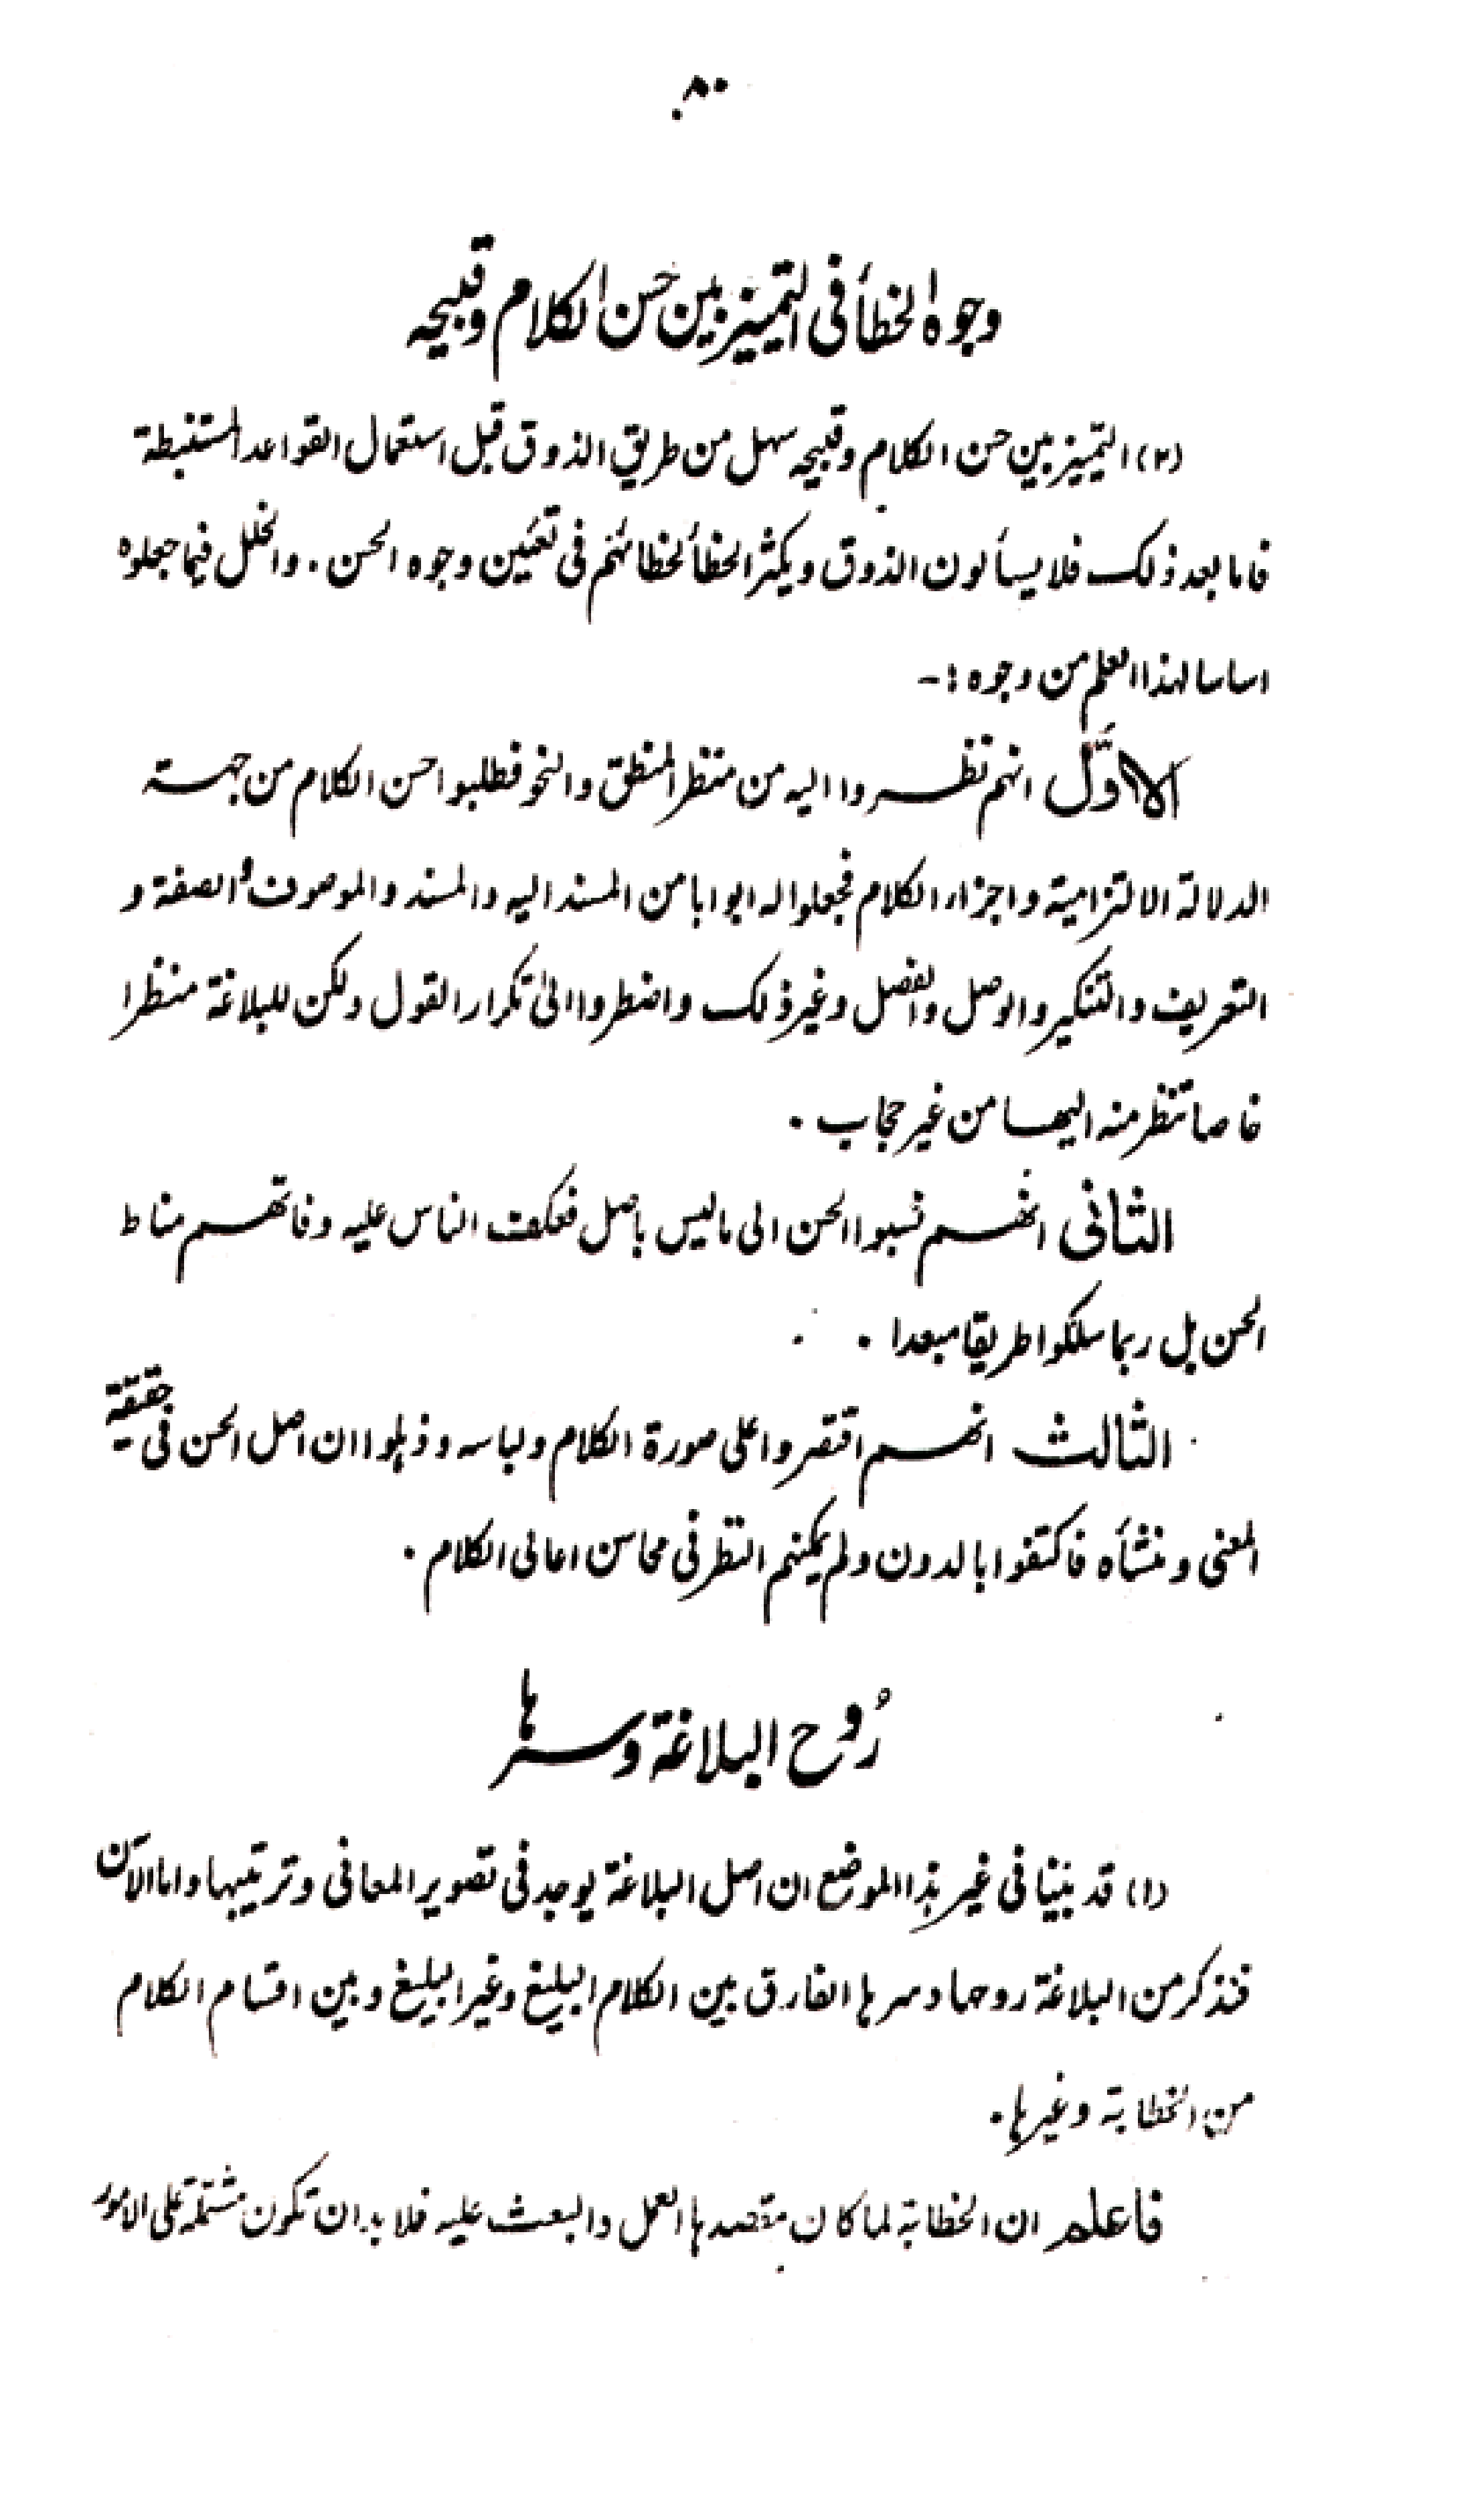 ٨٠
وجوه الخطأ فى التمييز بين حسن الكلام وقبيحه
(٢) التمييز بين حسن الكلام وقبيحه سهل من طريق الذوق قبل استعمال القواعد المستنبطة
فاما بعد ذلك فلا يسألون الذوق ويكثر الخطأ لخطائهم فى تعيين وجوه الحسن . والخلل فيما جعلوه
اساسا لهذا العلم من وجوه :-
الاوّل انهم نظروا اليه من منظر المنطق والنحو فطلبوا حسن الكلام من جهة
الدلالة الالتزامية واجزاء الكلام فجعلوا له ابوابا من المسند اليه والمسند والموصوف والصفة و
التعريف والتنكير والوصل والفصل وغير ذلك واضطروا الى تكرار القول ولكن للبلاغة منظرا
خاصا تنظر منه اليها من غير حجاب .
الثانى انهم نسبوا الحسن الى ما ليس باصل فعكف الناس عليه وفاتهم مناط
الحسن بل ربما سلكوا طريقا مبعدا .
الثالث انهم اقتصروا على صورة الكلام ولباسه وذهلوا ان اصل الحسن فى حقيقة
المعنى ومنشأه فاكتفوا بالدون ولم يمكنهم النظر فى محاسن اعالى الكلام .
رُوح البلاغة وسرها
(١) قد بينا فى غير هذا الموضع ان اصل البلاغة يوجد فى تصوير المعانى وترتيبها واما الآن
فنذكر من البلاغة روحها وسرها الفارق بين الكلام البليغ وغير البليغ وبين اقسام الكلام
من الخطابة وغيرها .
فاعلم ان الخطابة لما كان مقصدها العمل والبعث عليه فلا بد ان تكون مشتملة على الامور